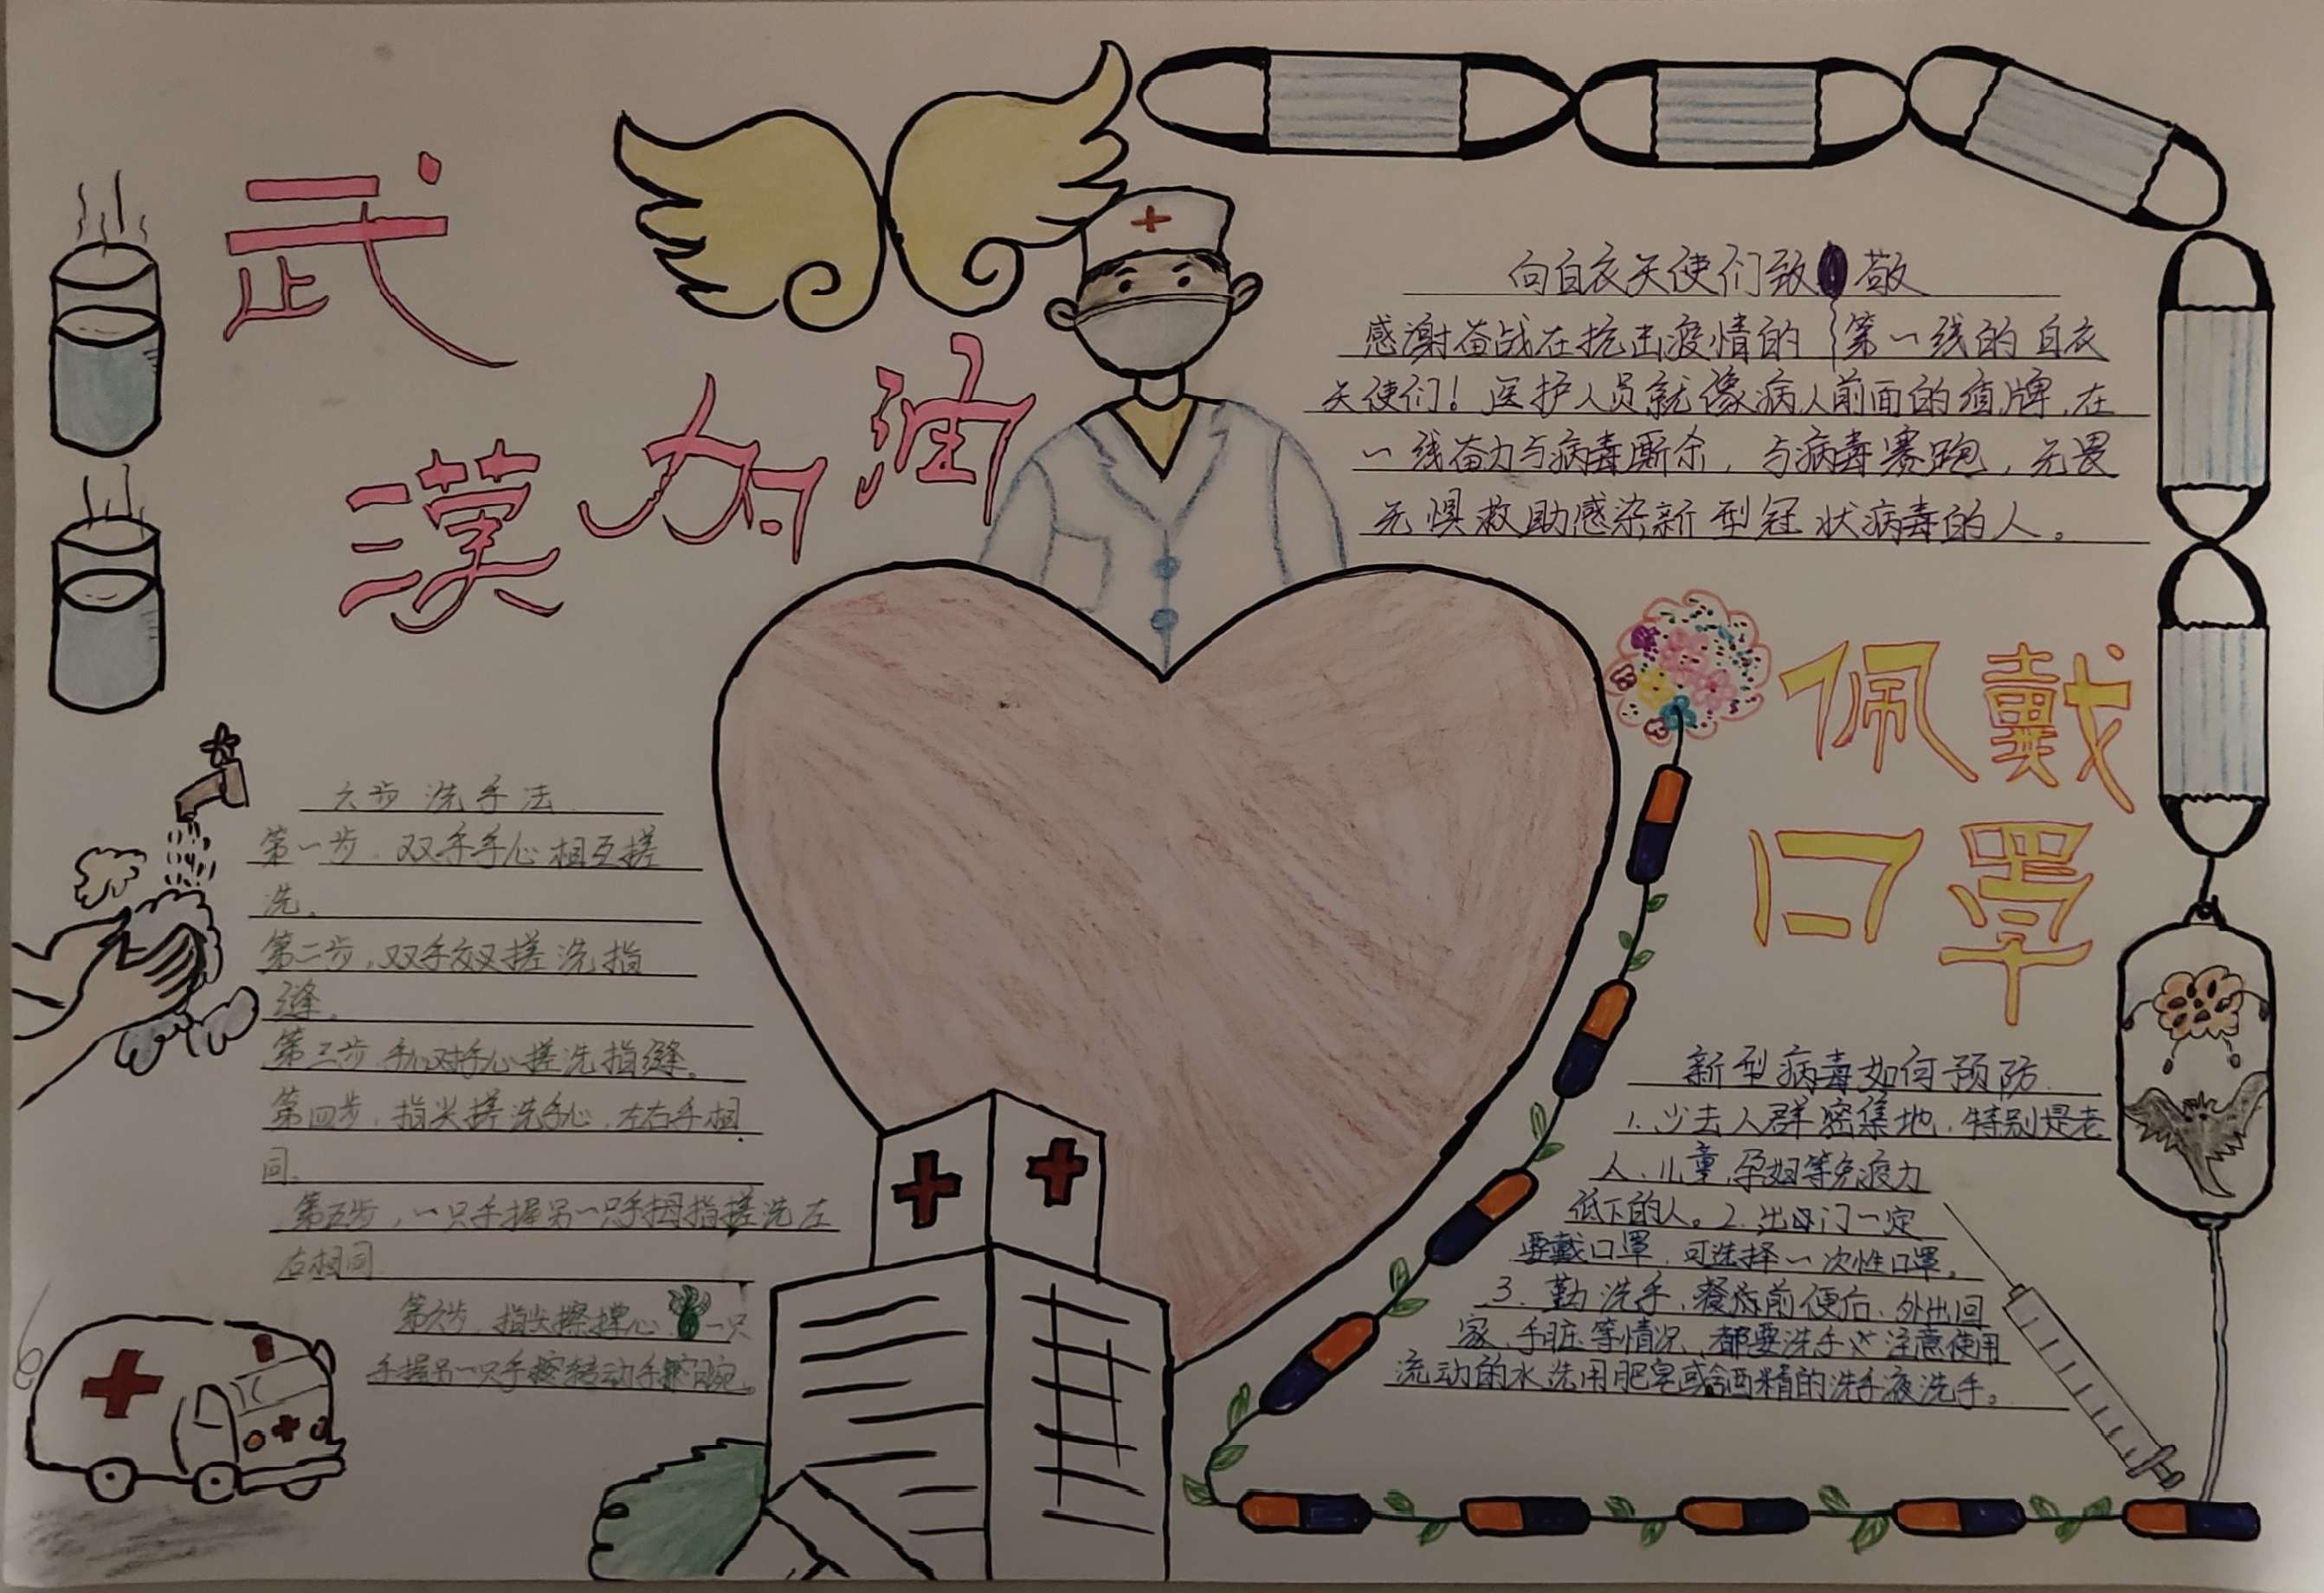 武
漢加油
向白衣天使们致敬
感谢奋战在抗击疫情的第一线的白衣
天使们！医护人员就像病人前面的盾牌，在
一线奋力与病毒厮杀，与病毒赛跑，无畏
无惧救助感染新型冠状病毒的人。
佩戴
口罩
六步洗手法
第一步，双手手心相互搓
洗。
第二步，双手交叉搓洗指
缝。
第三步手心对手心搓洗指缝。
第四步，指尖搓洗手心，左右手相
同。
第五步，一只手握另一只手拇指搓洗左
右相同
第六步，指尖擦掌心 一只
手握另一只手 转动手腕。
新型病毒如何预防
1.少去人群密集地，特别是老
人、儿童，孕妇等免疫力
低下的人。2.出门一定
要戴口罩，可选择一次性口罩。
3.勤洗手，餐饭前便后、外出回
家、手脏等情况，都要洗手 注意使用
流动的水洗用肥皂或含酒精的洗手液洗手。